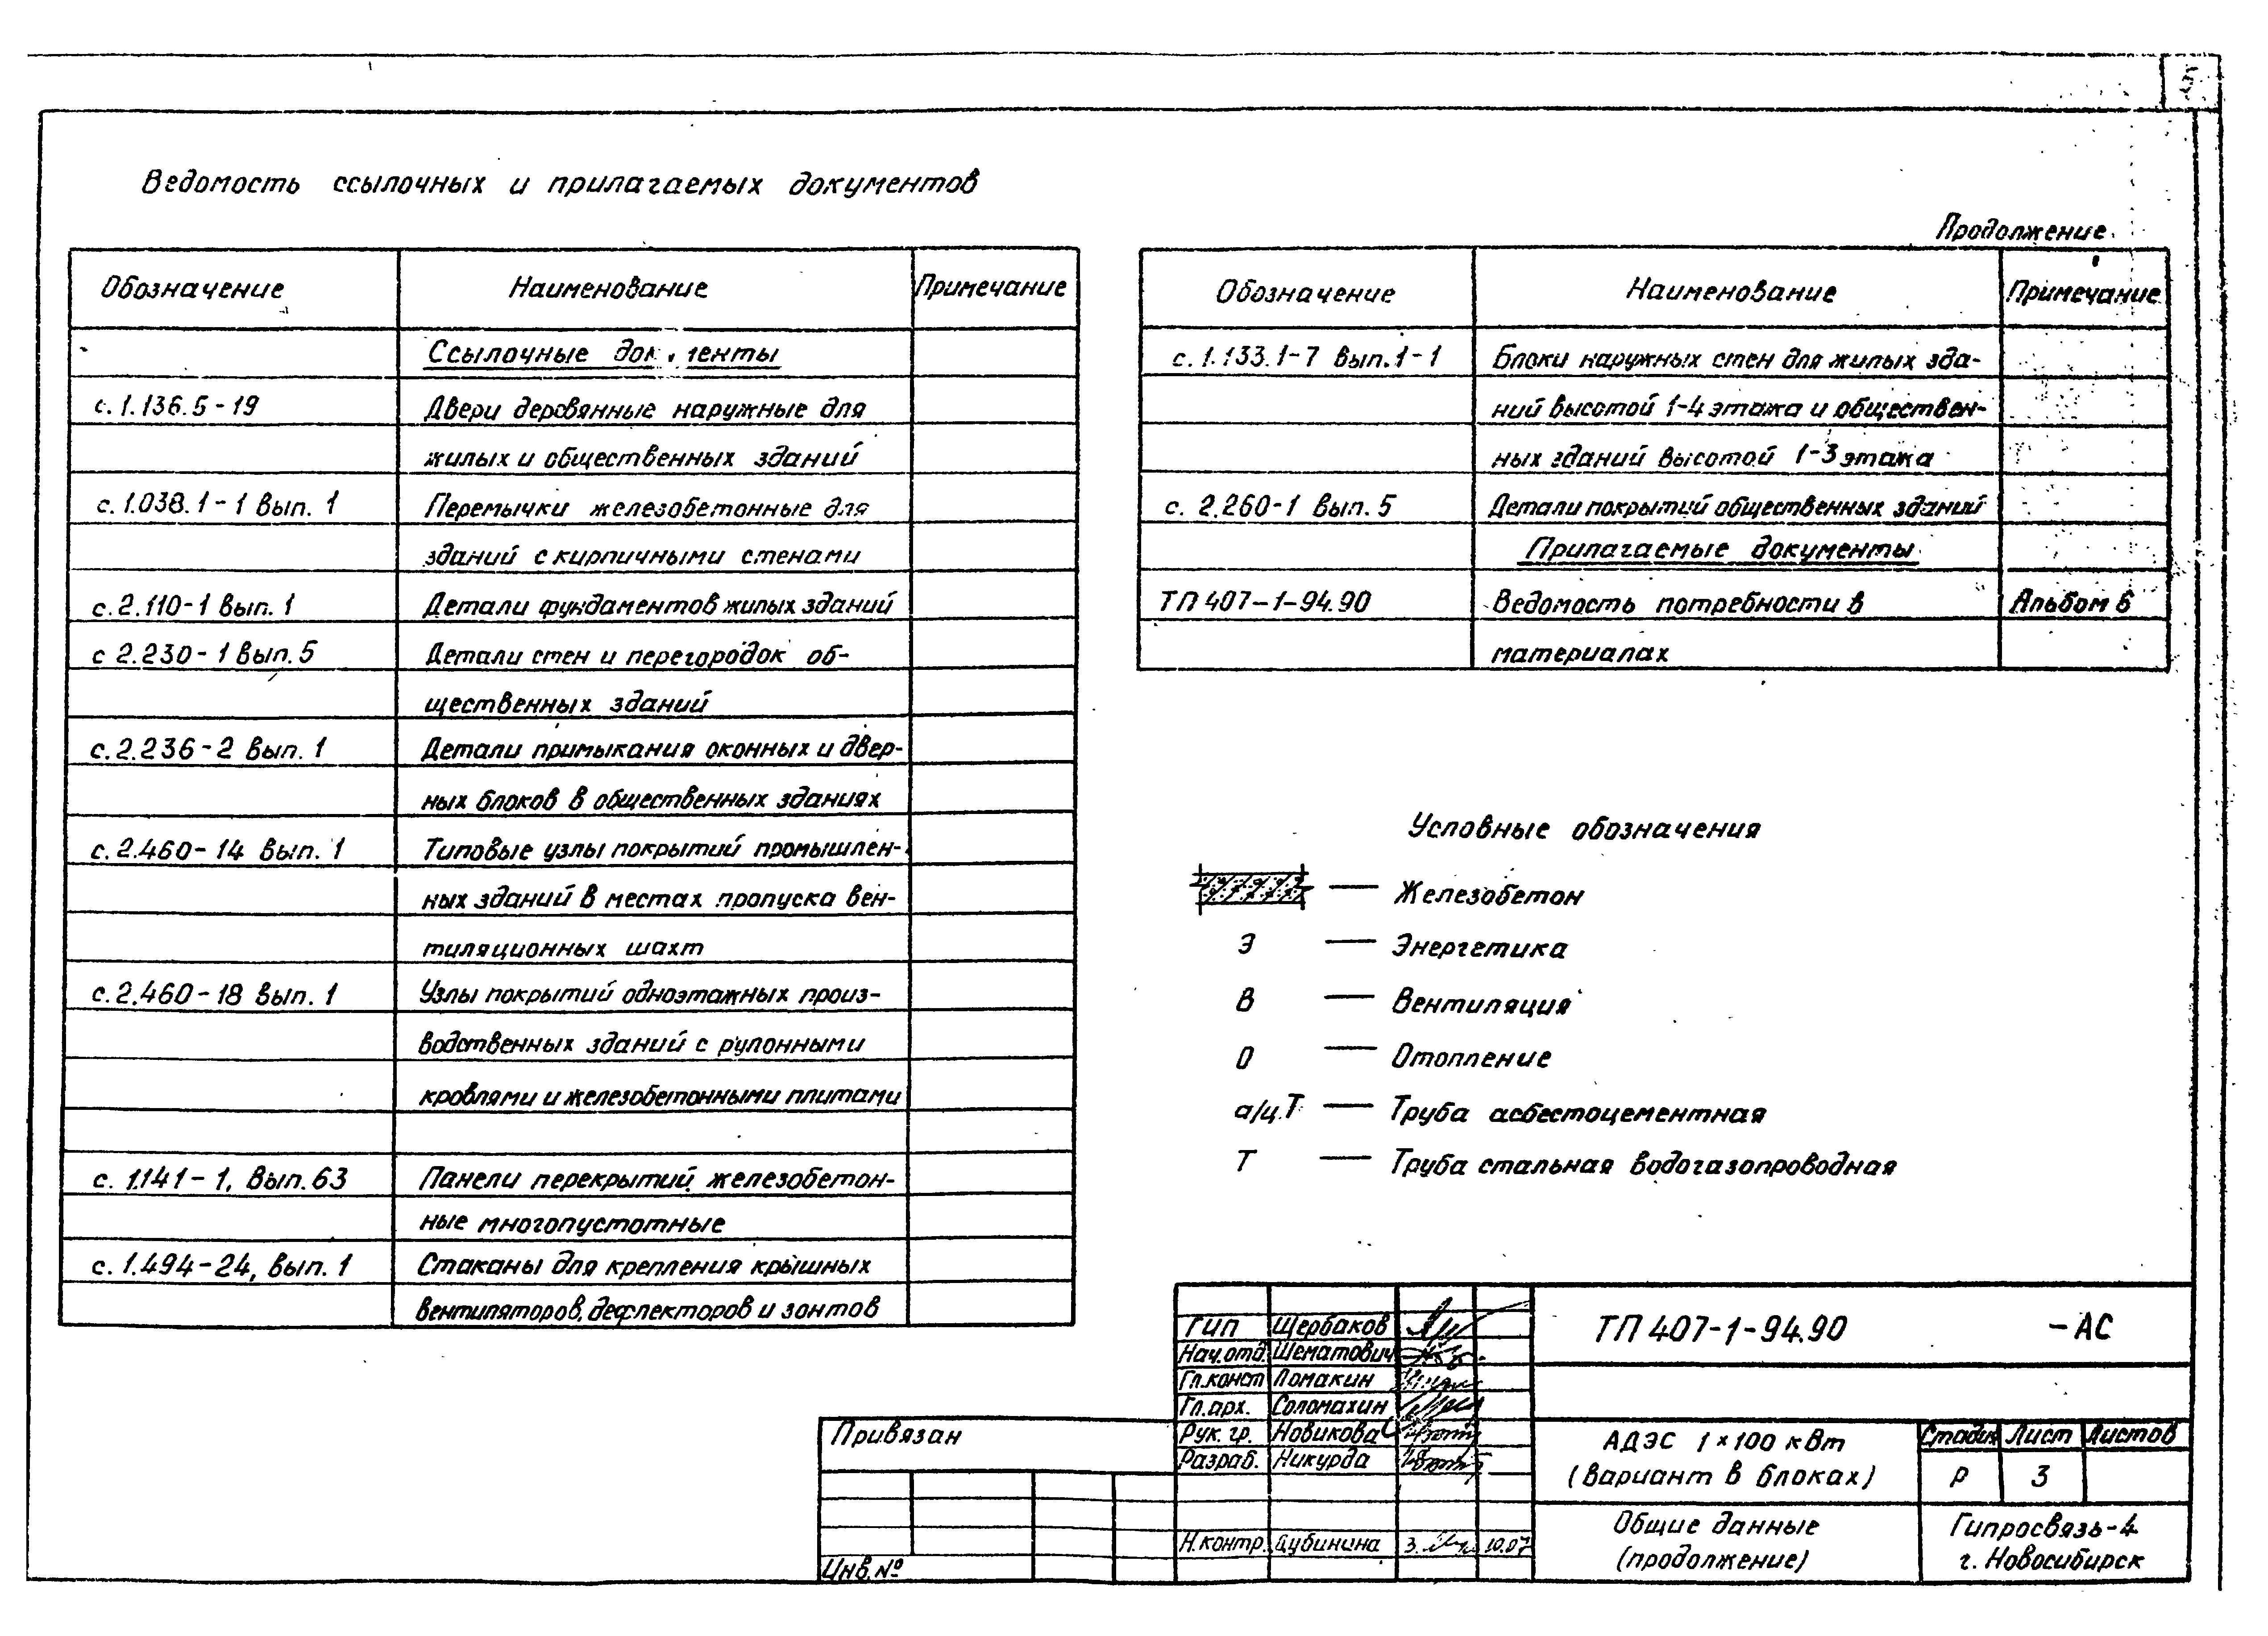 Ведомость ссылочных и прилагаемых документов
Обозначение Наименование Примечание
Ссылочные
с. 1.136.5-19 Двери деревянные наружные для
жилых и общественных зданий
с. 1.038.1-1 Вып. 1 Перемычки железобетонные для
зданий с кирпичными стенами
с. 2.110-1 Вып. 1 Детали фундаментов жилых зданий
с 2.230-1 Вып. 5 Детали стен и перегородок об-
щественных зданий
с. 2.236-2 Вып. 1 Детали примыкания оконных и двер-
ных блоков в общественных зданиях
с. 2.460-14 Вып. 1 Типовые узлы покрытий промышлен-
ных зданий в местах пропуска вен-
тиляционных шахт
с. 2.460-18 Вып. 1 Узлы покрытий одноэтажных произ-
водственных зданий с рулонными
кровлями и железобетонными плитами
с. 1.141-1, Вып. 63 Панели перекрытий железобетон-
ные многопустотные
с. 1.494-24, Вып. 1 Стаканы для крепления крышных
вентиляторов, дефлекторов и зонтов
Продолжение
Обозначение Наименование Примечание
с. 1.133.1-7 Вып. 1-1 Блоки наружных стен для жилых зда-
ний высотой 1-4 этажа и обществен-
ных зданий высотой 1-3 этажа
с. 2.260-1 Вып. 5 Детали покрытий общественных зданий
Прилагаемые документы
ТП 407-1-94.90 Ведомость потребности в Альбом 6
материалах
Условные обозначения
— Железобетон
Э — Энергетика
В — Вентиляция
О — Отопление
а/ц.Т — Труба асбестоцементная
Т — Труба стальная водогазопроводная
ГИП Щербаков
Нач.отд. Шематович
Гл.конст Ломакин
Гл.арх. Соломахин
Рук. гр. Новикова
Разраб. Никурда
Н.контр.
ТП 407-1-94.90 -АС
АДЭС 1×100 кВт
(Вариант в блоках)
Стадия Лист Листов
Р 3
Общие данные
(продолжение)
Гипросвязь-4
г. Новосибирск
Привязан
Инв. №